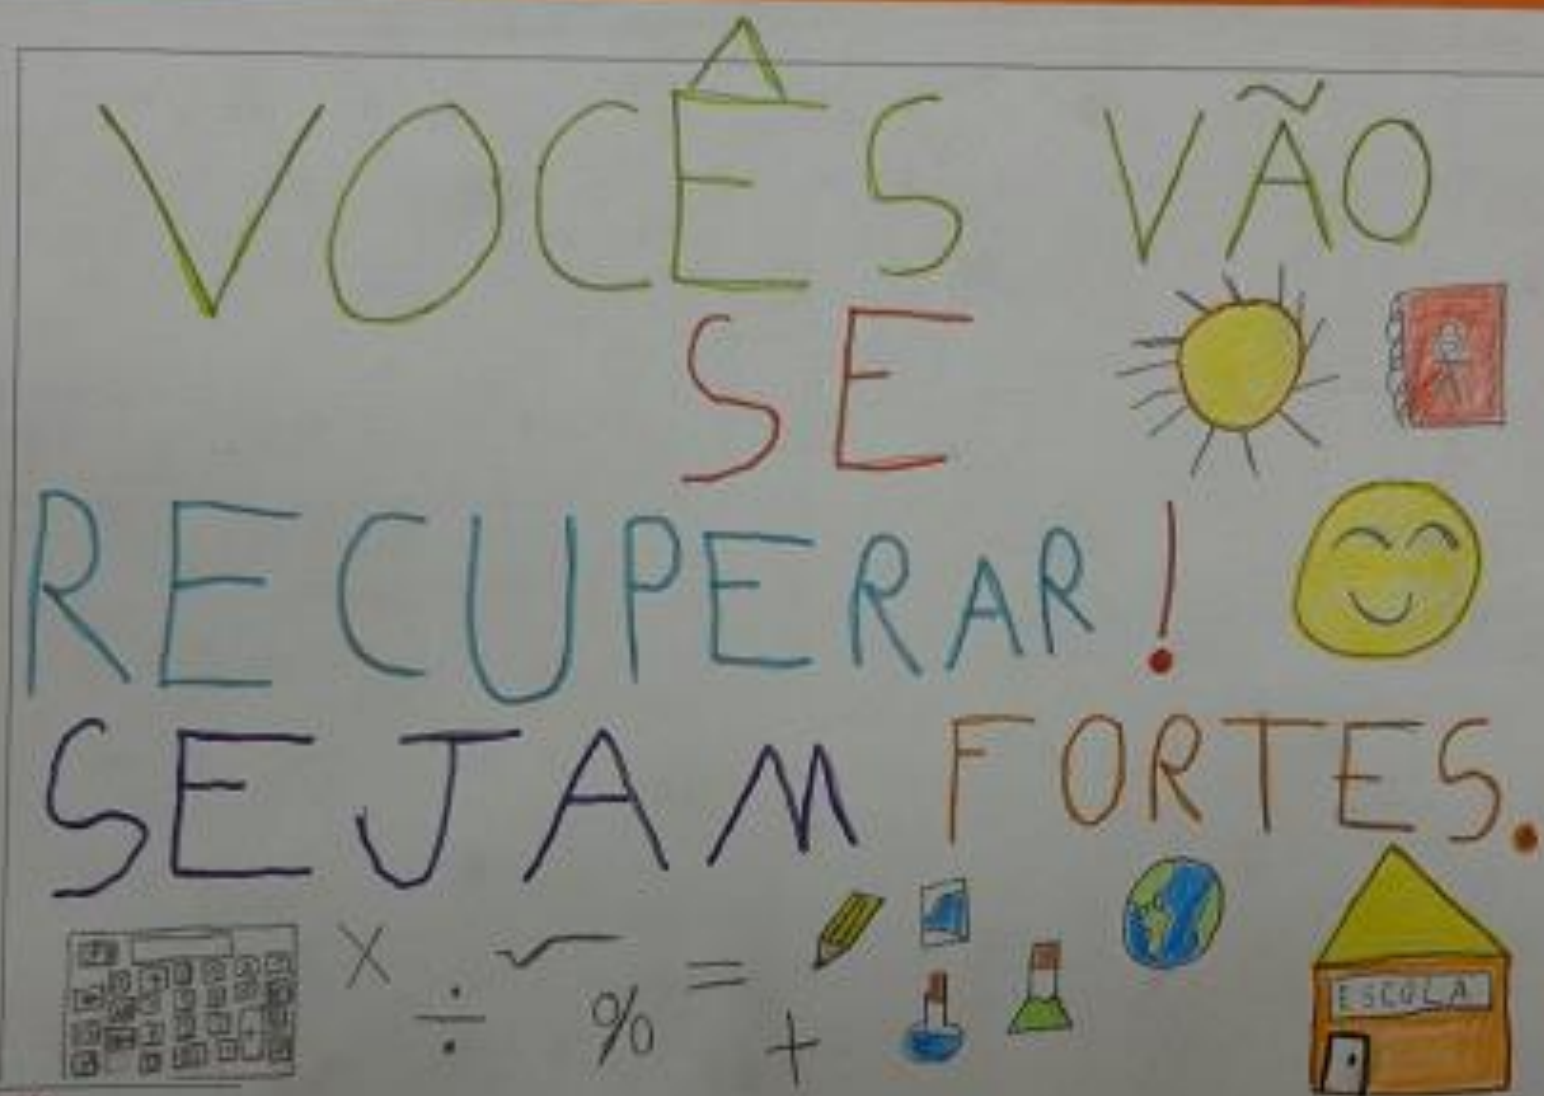 VOCÊS VÃO
SE
RECUPERAR!
SEJAM FORTES.
X ÷ √ % = +
ESCOLA